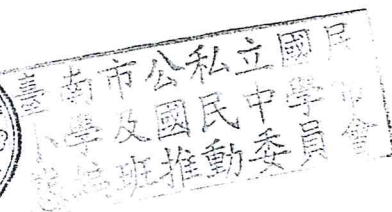 臺南市公私立國民
小學及國民中學
編班推動委員會